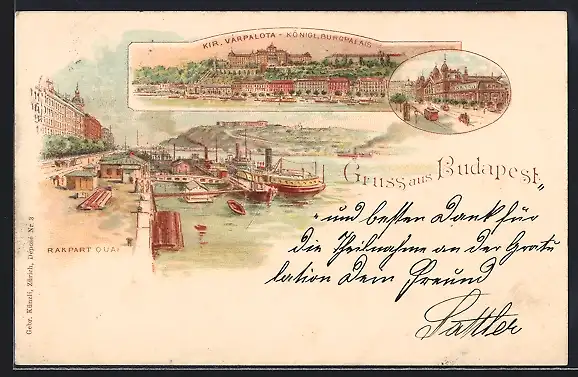 KIR. VÁRPALOTA - KÖNIGL. BURGPALAIS
Gruss aus Budapest
RAKPART QUAI
"und besten Dank für
die Theilnahme an der Gratu
lation Dein Freund
Sattler
Gebr. Künzli, Zürich, Déposé Nr. 3